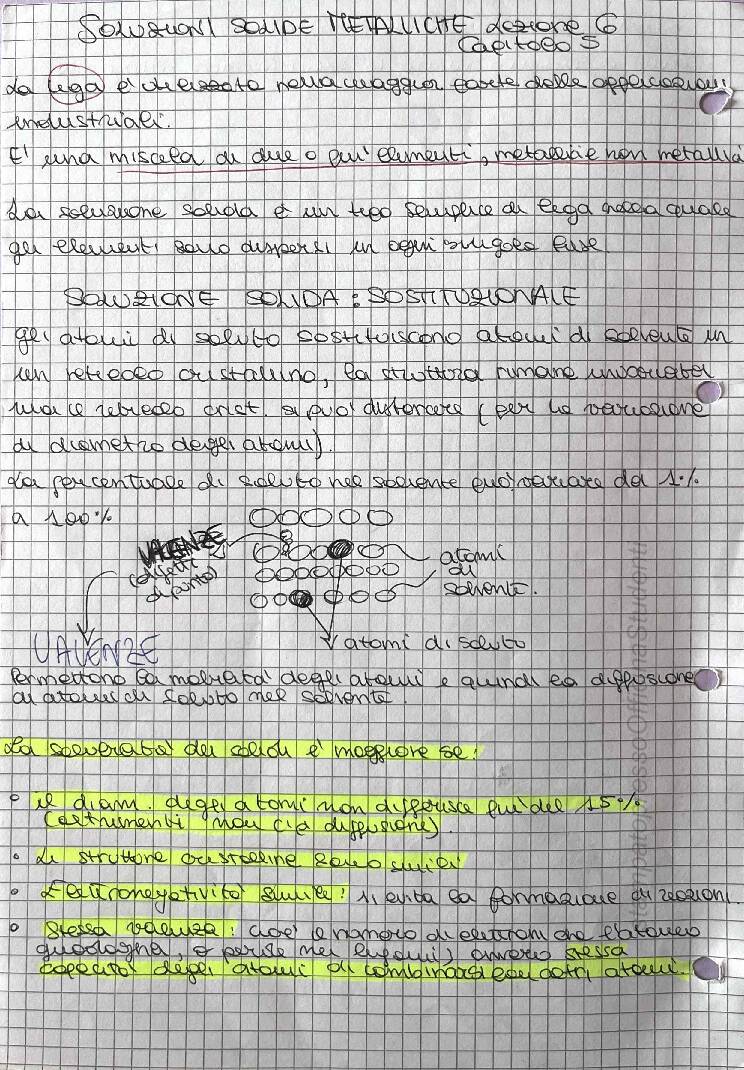 SOLUZIONI SOLIDE METALLICHE Lezione 6
Capitolo 5
La lega è utilizzata nella maggior parte delle applicazioni
industriali.
E' una miscela di due o più elementi, metallici e non metallici
La soluzione solida è un tipo semplice di lega nella quale
gli elementi sono dispersi in ogni singola fase
SOLUZIONE SOLIDA: SOSTITUZIONALE
gli atomi di soluto sostituiscono atomi di solvente in
un reticolo cristallino, la struttura rimane invariata
ma il reticolo crist. si può distorcere (per la variazione
di diametro degli atomi).
La percentuale di soluto nel solvente può variare da 1%
a 100%
VALENZE
(difetti
di punto)
atomi
di
solvente.
VALENZE
atomi di soluto
Permettono la mobilità degli atomi e quindi la diffusione
di atomi di soluto nel solvente.
La solubilità dei solidi è maggiore se:
• il diam. degli atomi non differisce più del 15%
(altrimenti non c'è diffusione).
• Le strutture cristalline sono simili
• Elettronegatività simile: si evita la formazione di reazioni.
• Stessa valenza: cioè il numero di elettroni che l'atomo
guadagna, o perde nei legami, ovvero stessa
capacità degli atomi di combinarsi con altri atomi.
StampatopressoOfficinaStudenti